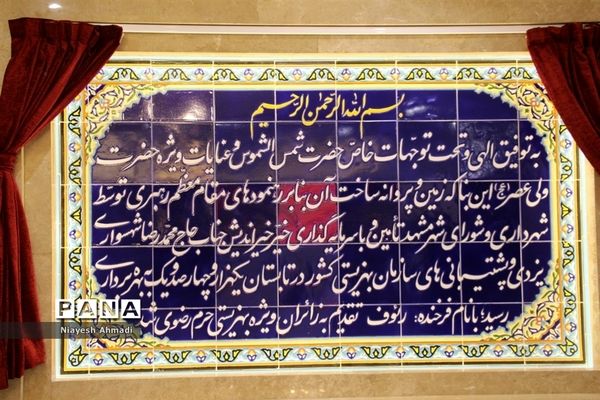 بسم الله الرحمن الرحیم
به توفیق الهی و تحت توجهات خاص حضرت شمس الشموس و عنایات ویژه حضرت
ولی عصر (عج) این بنا که زمین و پروانه ساخت آن بنابر رهنمودهای مقام معظم رهبری توسط
شهرداری و شورای شهر مشهد تأمین و با سرمایه گذاری خیر خیراندیش جناب حاج محمدرضا شهسواری
یزدی و پشتیبانی های سازمان بهزیستی کشور در تابستان یکهزار و چهارصد و یک به بهره برداری
رسید؛ با نام فرخنده: رئوف تقدیم به زائران ویژه بهزیستی حرم رضوی شد
PANA
Niayesh Ahmadi